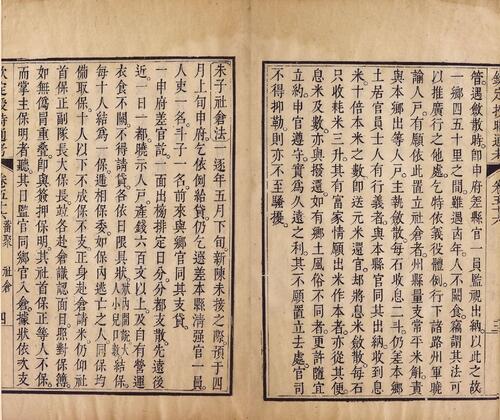 欽定授時通考 卷五十六 三
管遇斂散時即申府差縣官一員監視出納以此之故
一鄉四五十里之間雖遇凶年人不闕食竊謂其法可
以推廣行之他處乞特依義役體例行下諸路州軍曉
諭人戶有願依此置立社倉者州縣量支常平米斛責
與本鄉出等人戶主執斂散每石收息二斗仍差本鄉
土居官員士人有行義者與本縣官同其出納收到息
米十倍本米之數即送元米還官却將息米斂散每石
只收耗米三升其有富家情願出米作本者亦從其便
息米及數亦與撥還如有鄉土風俗不同者更許隨宜
立約申官遵守實爲久遠之利其不願置立去處官司
不得抑勒則亦不至騷擾
朱子社倉法一逐年五月下旬新陳未接之際預于四
月上旬申府乞依例給貸仍乞選差本縣清强官一員
人吏一名斗子一名前來與鄉官同其支貸
一申府差官訖一面出榜排定日分分都支散先遠後
近一日一都曉示人戶產錢六百文以上及自有營運
衣食不闕不得請貸各依日限具狀狀內開說大人小兒口數結保
每十人結爲一保遞相保委如保內逃亡之人同保均
備取保十人以下不成保不支正身赴倉請米仍仰社
首保正副隊長大保長竝各赴倉識認面目照對保簿
如無僞冒重疊即與簽押保明其社首保正等人不保
而掌主保明者聽其日監官同鄉官入倉據狀依次支
欽定授時通考 卷五十六 蓄聚 社倉 四